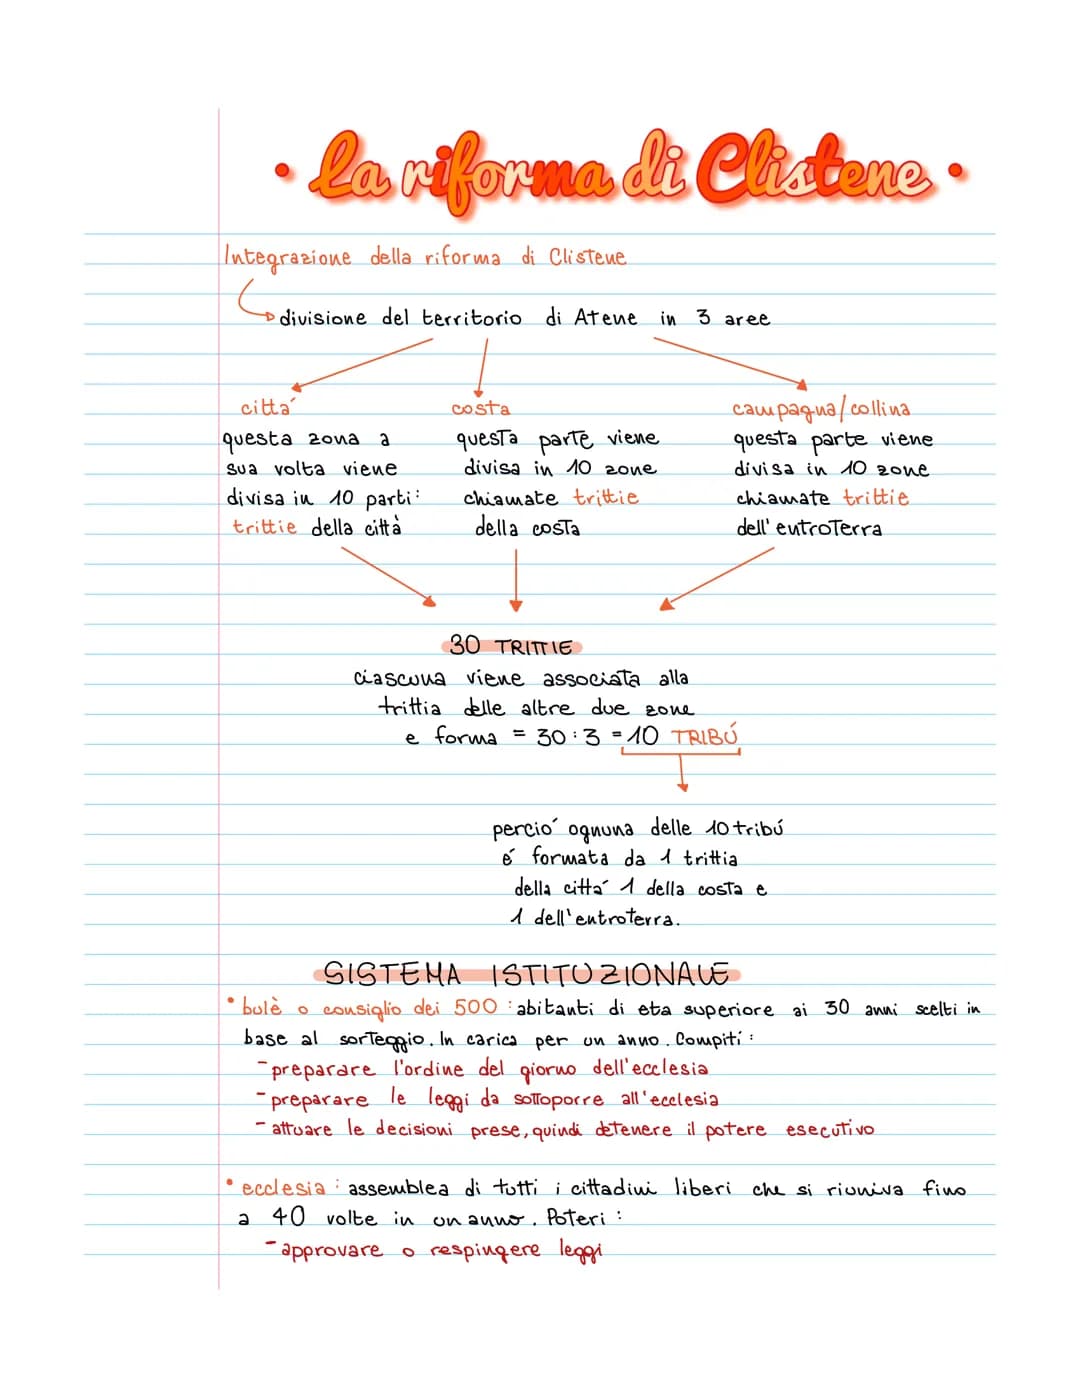 • La riforma di Clistene •
Integrazione della riforma di Clistene
divisione del territorio di Atene in 3 aree
città
questa zona a
sua volta viene
divisa in 10 parti:
trittie della città
costa
questa parte viene
divisa in 10 zone
chiamate trittie
della costa
campagna/collina
questa parte viene
divisa in 10 zone
chiamate trittie
dell'entroterra
30 TRITTIE
ciascuna viene associata alla
trittia delle altre due zone
e forma = 30:3 = 10 TRIBÚ
perció ognuna delle 10 tribú
é formata da 1 trittia
della cittá 1 della costa e
1 dell'entroterra.
SISTEMA ISTITUZIONALE
• bulè o consiglio dei 500 : abitanti di eta superiore ai 30 anni scelti in
base al sorteggio. In carica per un anno. Compiti :
- preparare l'ordine del giorno dell'ecclesia
- preparare le leggi da sottoporre all'ecclesia
- attuare le decisioni prese, quindi detenere il potere esecutivo
• ecclesia : assemblea di tutti i cittadini liberi che si riuniva fino
a 40 volte in un anno. Poteri :
- approvare o respingere leggi